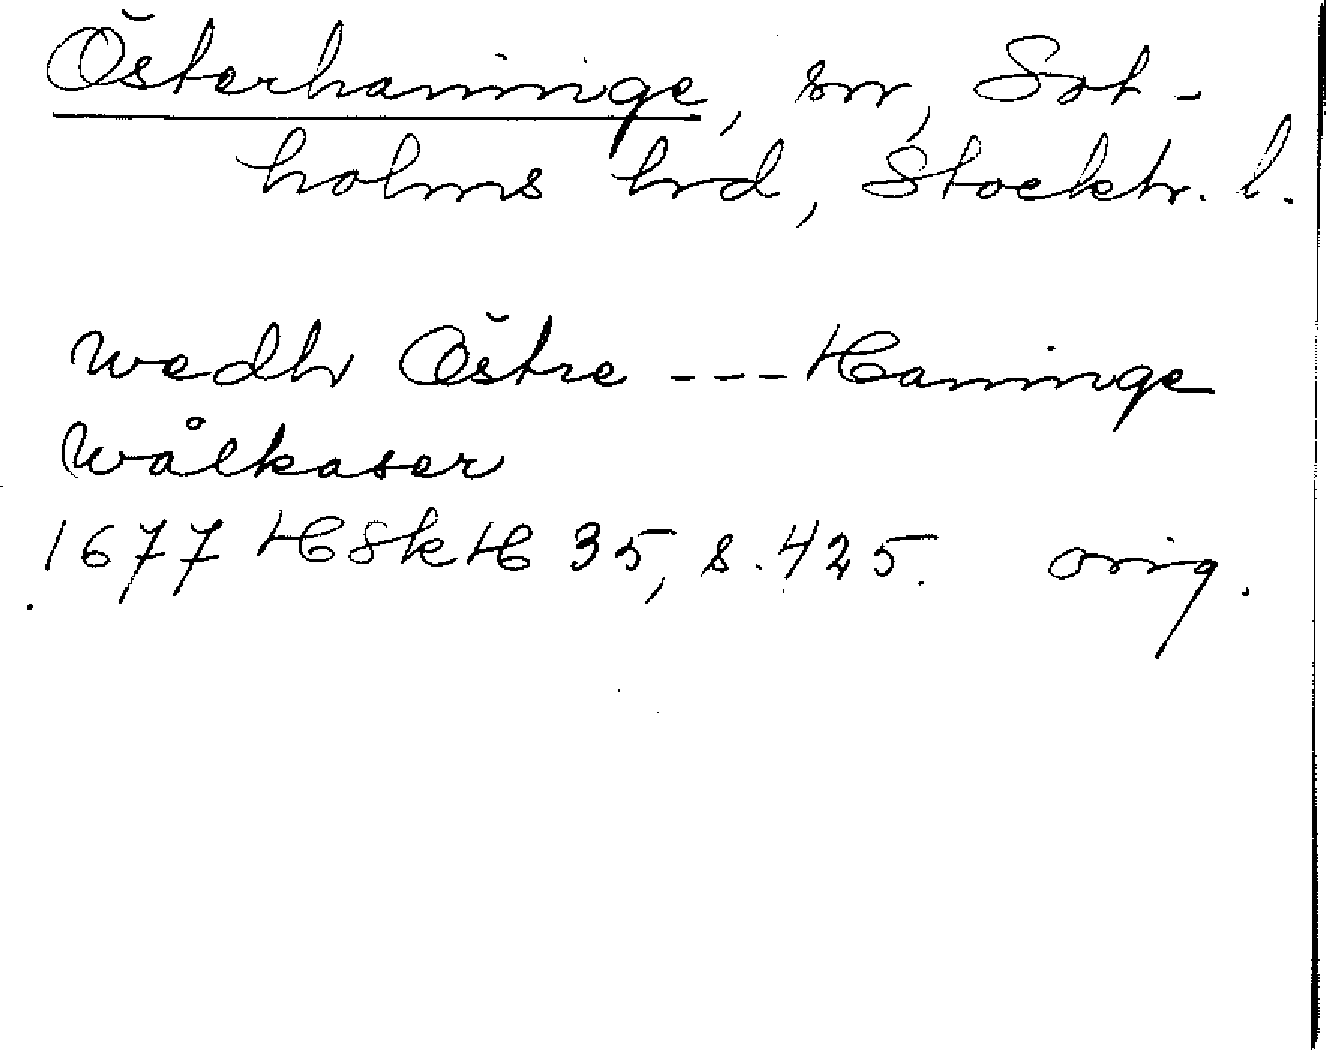 Österhaninge, sn, Sot-
holms hrd, Stockh. l.
wedh Östre --- Haninge
Wålkaser
1677 HSkH 35, s. 425. orig.